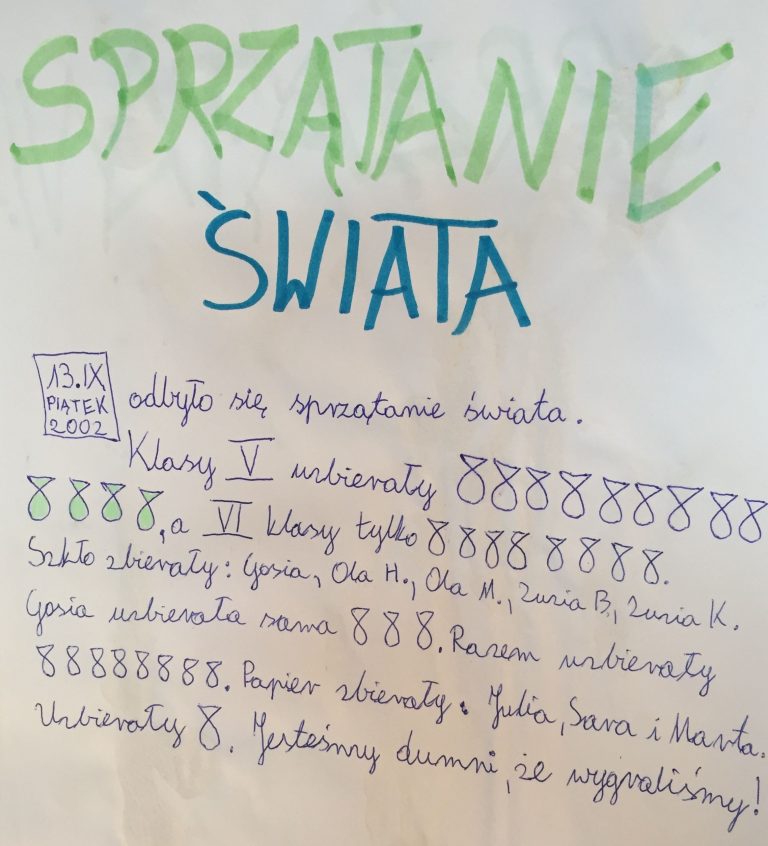 SPRZĄTANIE
ŚWIATA
13.IX
PIĄTEK
2002
odbyło się sprzątanie świata.
Klasy V uzbierały
, a VI klasy tylko .
Szkło zbierały: Gosia, Ola H., Ola M., Zuzia B., Zuzia K.
Gosia uzbierała sama . Razem uzbierały
. Papier zbierały: Julia, Sara i Marta.
Uzbierały . Jesteśmy dumni, że wygraliśmy!